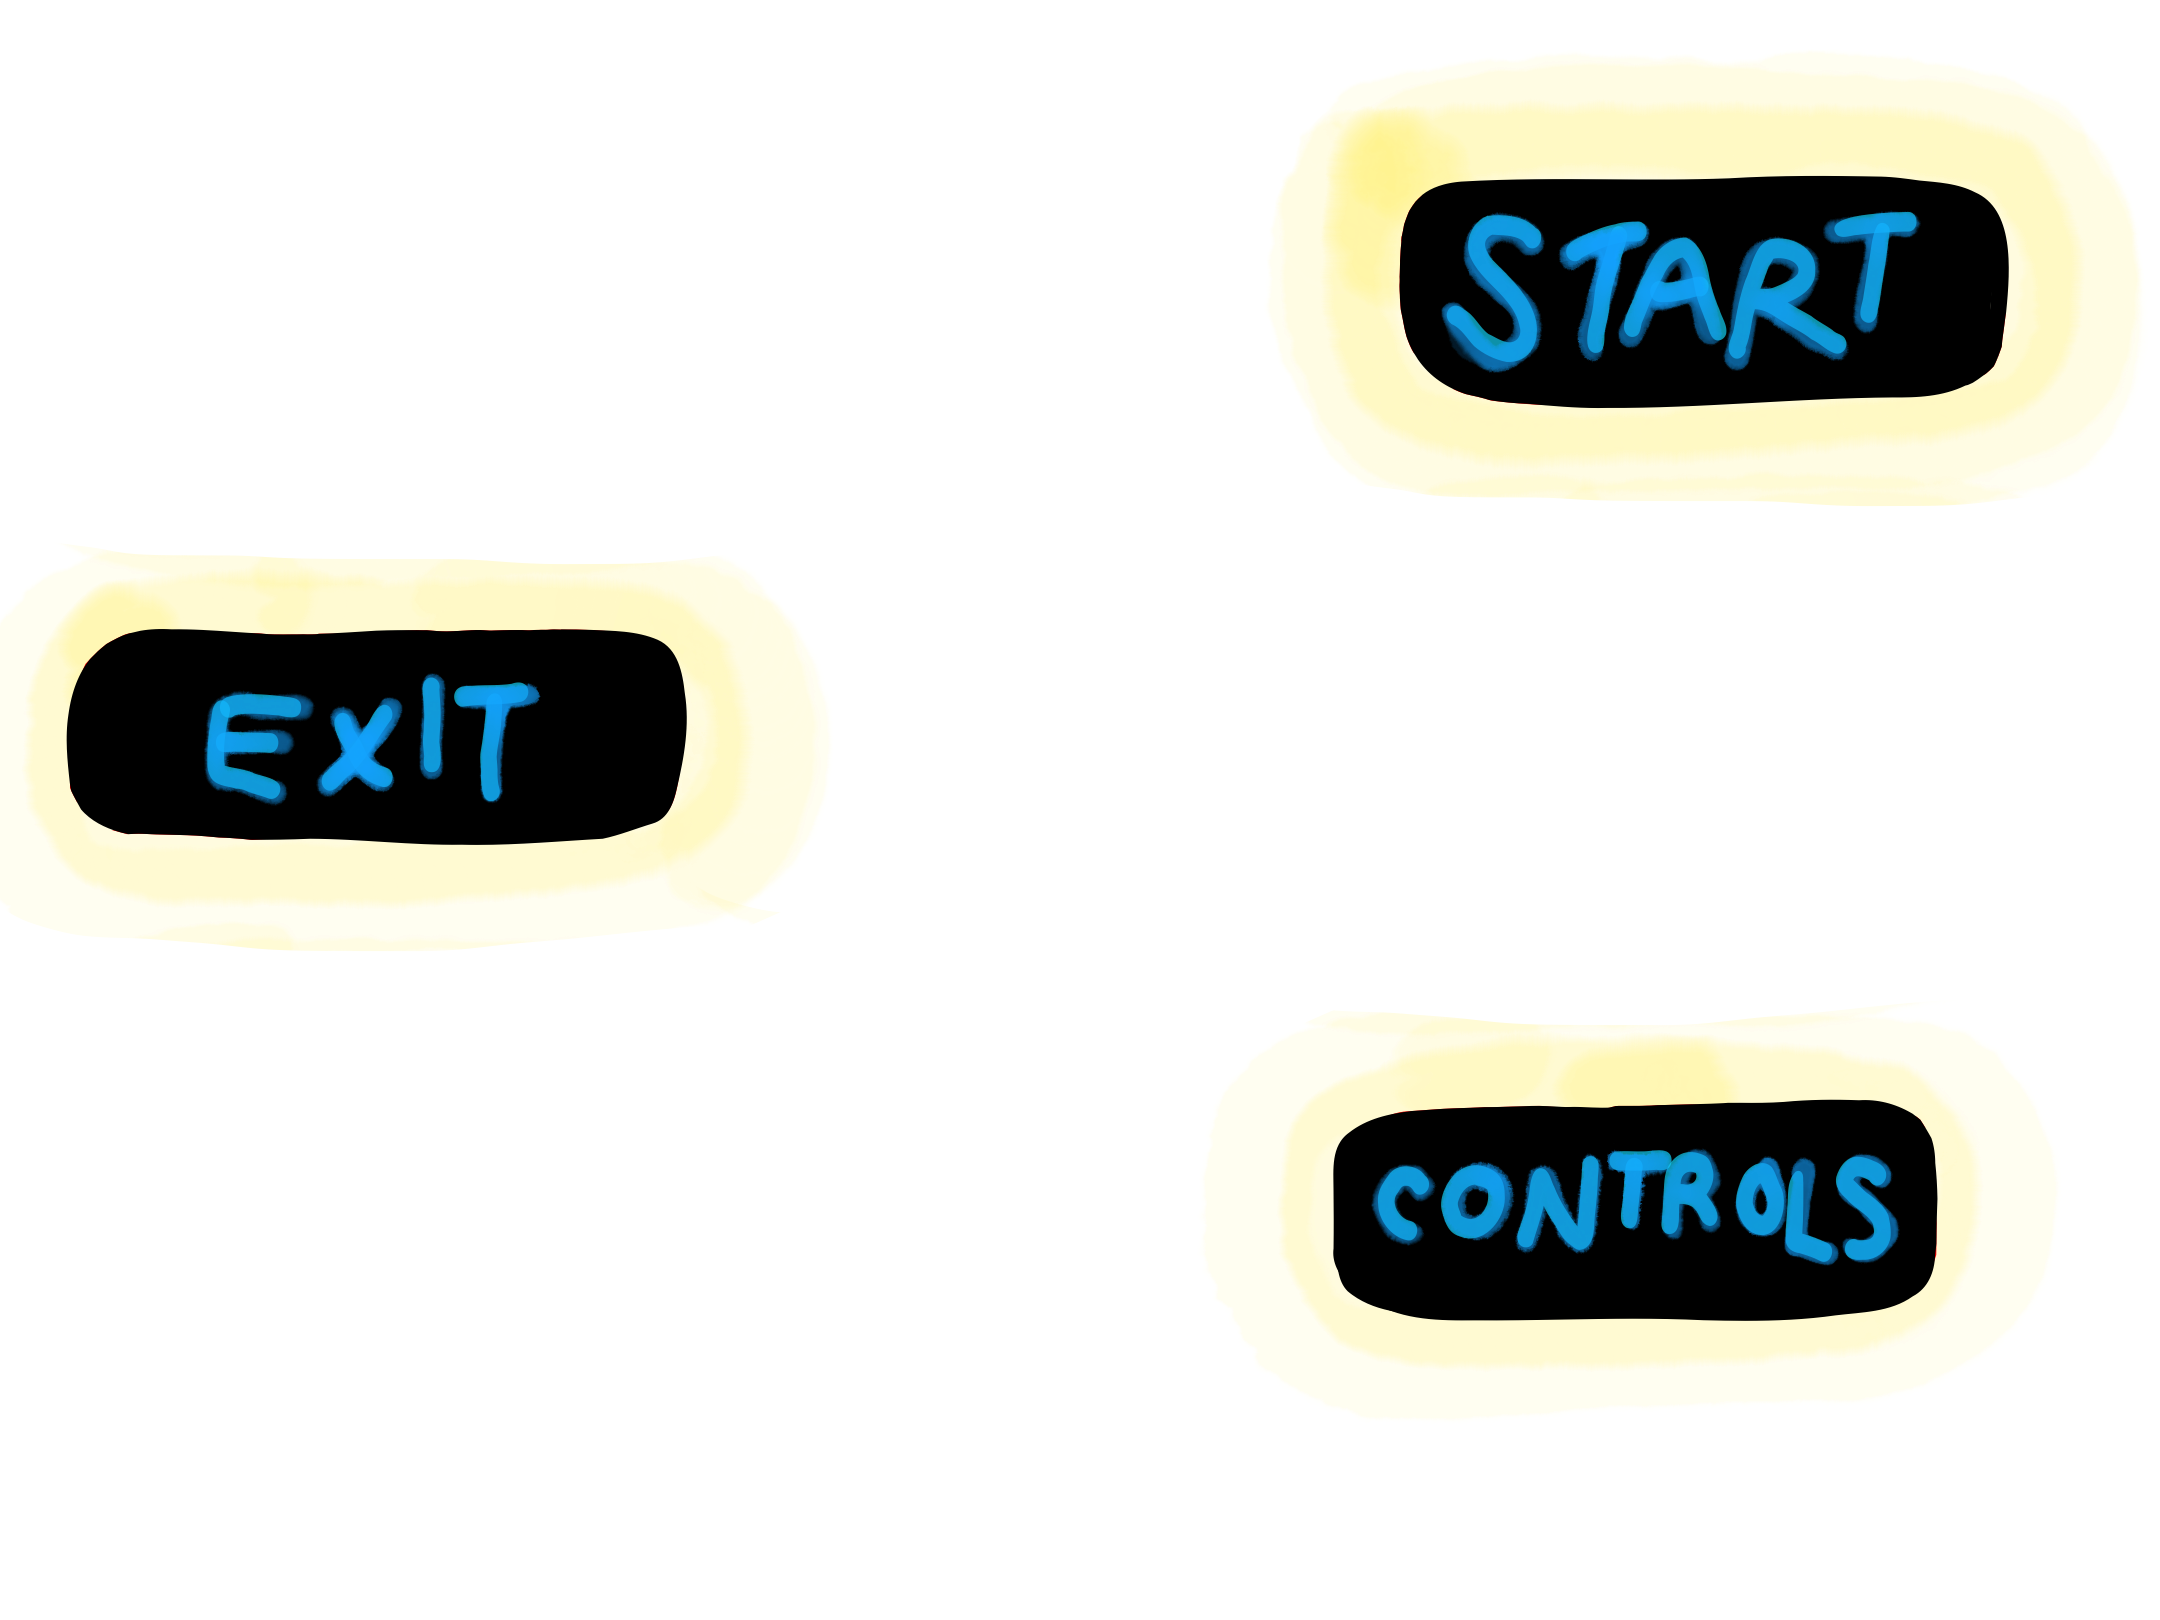 START
EXIT
CONTROLS